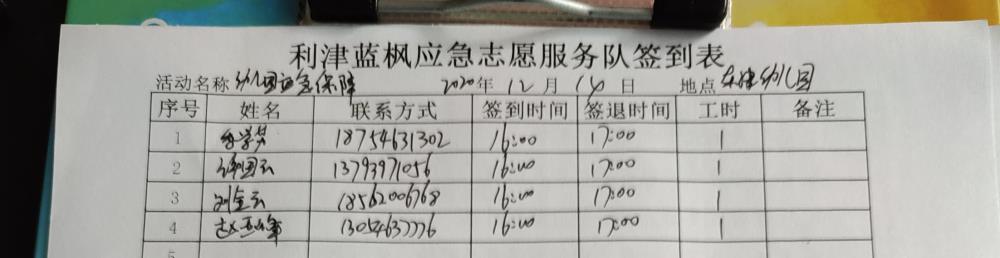 利津蓝枫应急志愿服务队签到表
活动名称 幼儿园应急保障 2020年 12月 14日 地点 东津幼儿园
序号 姓名 联系方式 签到时间 签退时间 工时 备注
1 18754631302 16:00 17:00 1
2 13793971056 16:00 17:00 1
3 刘金云 18562006768 16:00 17:00 1
4 赵 13054637776 16:00 17:00 1
5